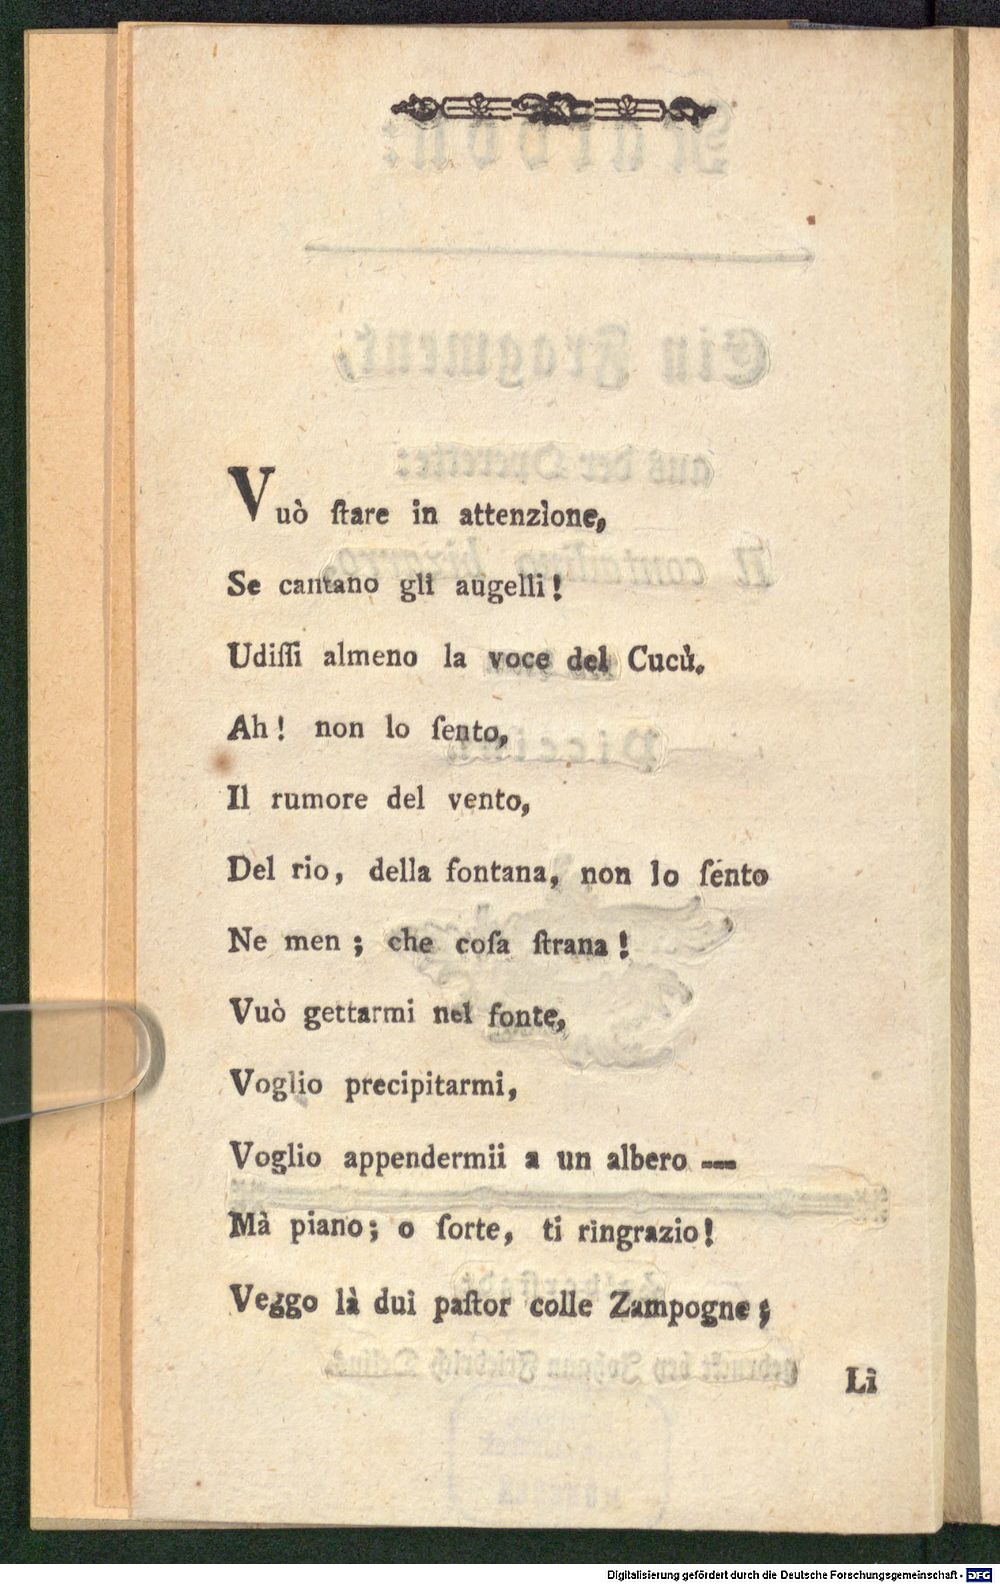 Vuò ſtare in attenzìone,
Se cantano gli augelli!
Udiſſi almeno la voce del Cucù.
Ah! non lo ſento,
Il rumore del vento,
Del rio, della fontana, non lo ſento
Ne men; che coſa ſtrana!
Vuò gettarmi nel fonte,
Voglio precipitarmi,
Voglio appendermii a un albero —
Mà piano; o ſorte, ti ringrazio!
Veggo là dui paſtor colle Zampogne;
Lì
Digitalisierung gefördert durch die Deutsche Forschungsgemeinschaft - DFG